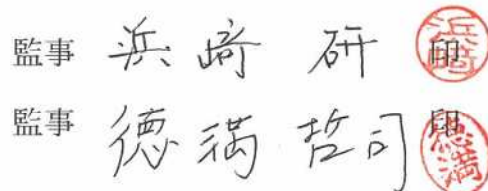 監事 浜﨑 研 印
監事 徳満 哲司 印